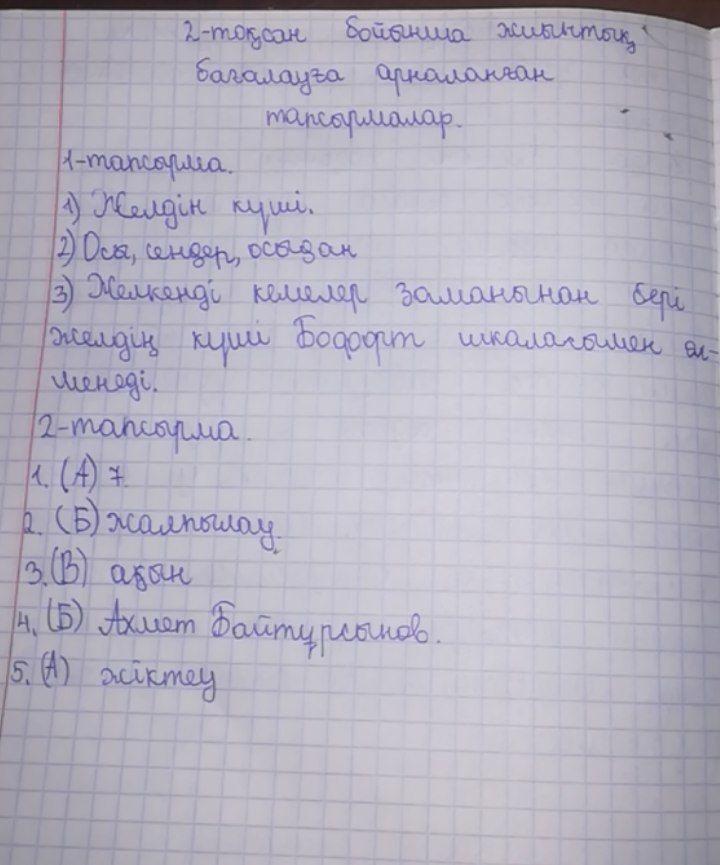 2-тоқсан бойынша жиынтық
бағалауға арналанған
тапсырмалар.
1-тапсырма.
1) Желдін күші.
2) Осы, сендер, осыдан
3) Желкенді кемелер заманынан бері
желдің күші Бофорт шкаласымен өл-
шенеді.
2-тапсырма.
1. (А) 7
2. (Б) жалпылау.
3. (В) ақын
4. (Б) Ахмет Байтұрсынов.
5. (А) жіктеу